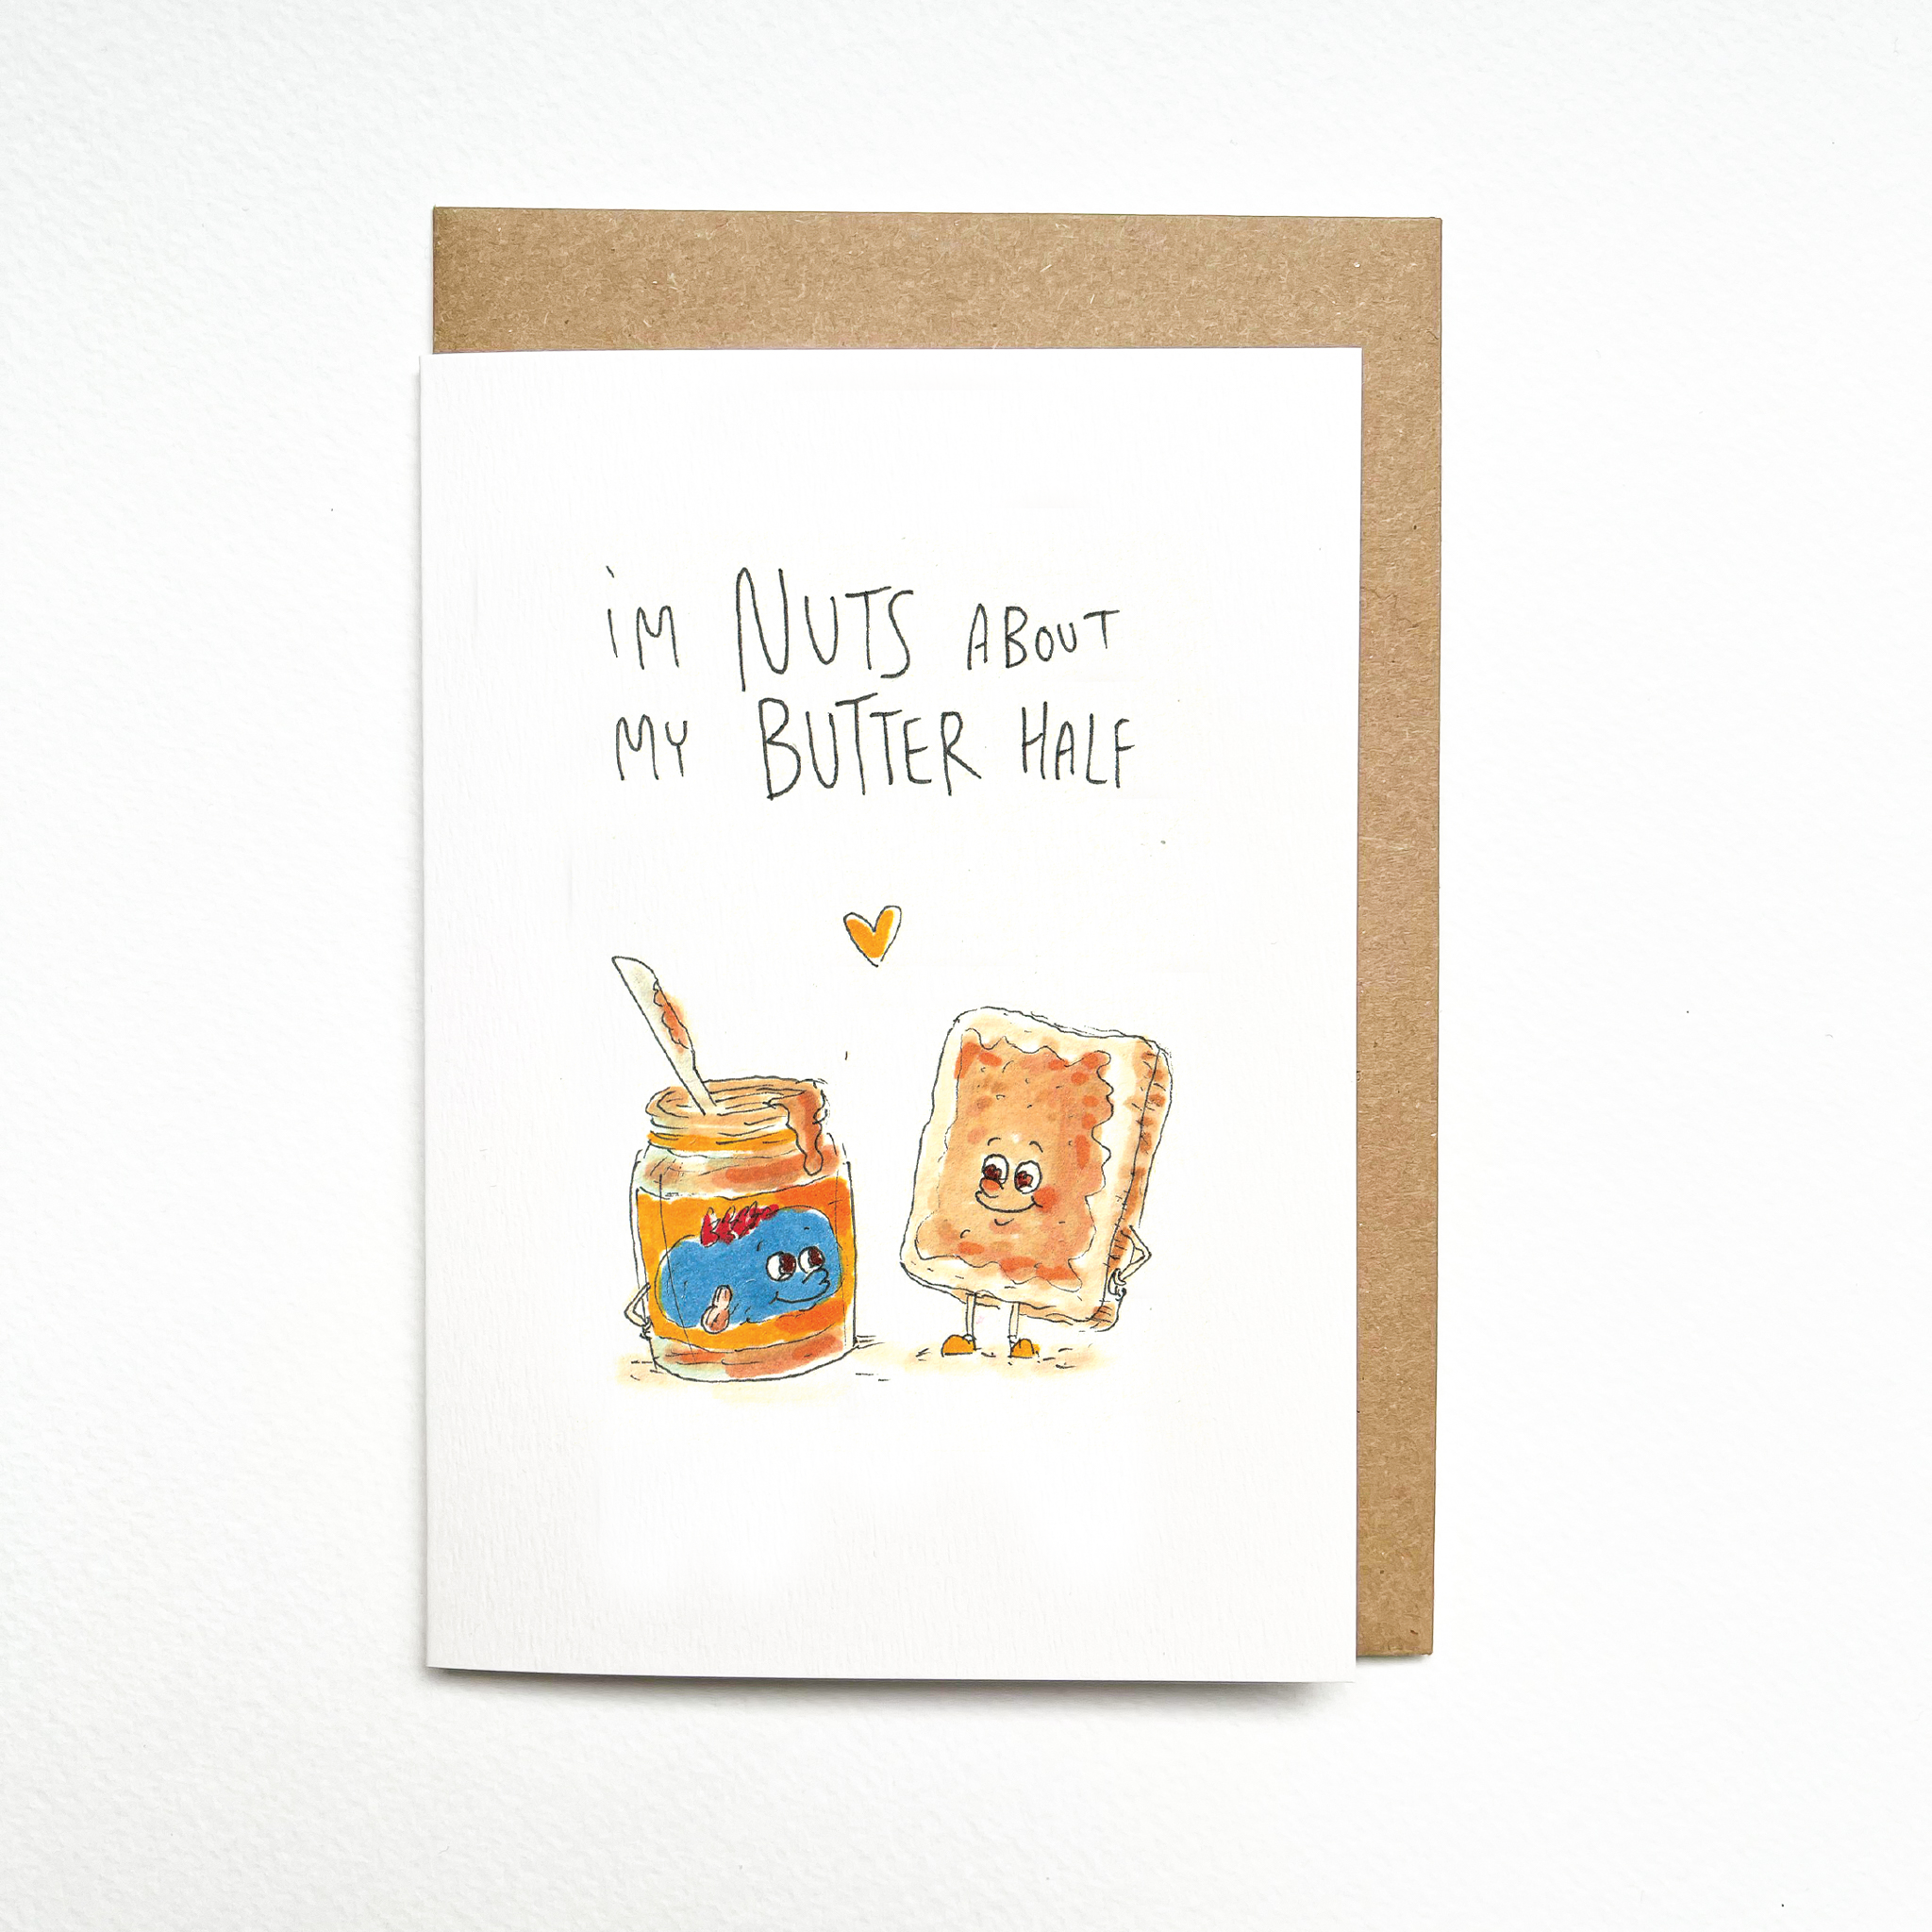 i'M NUTS ABOUT
MY BUTTER HALF